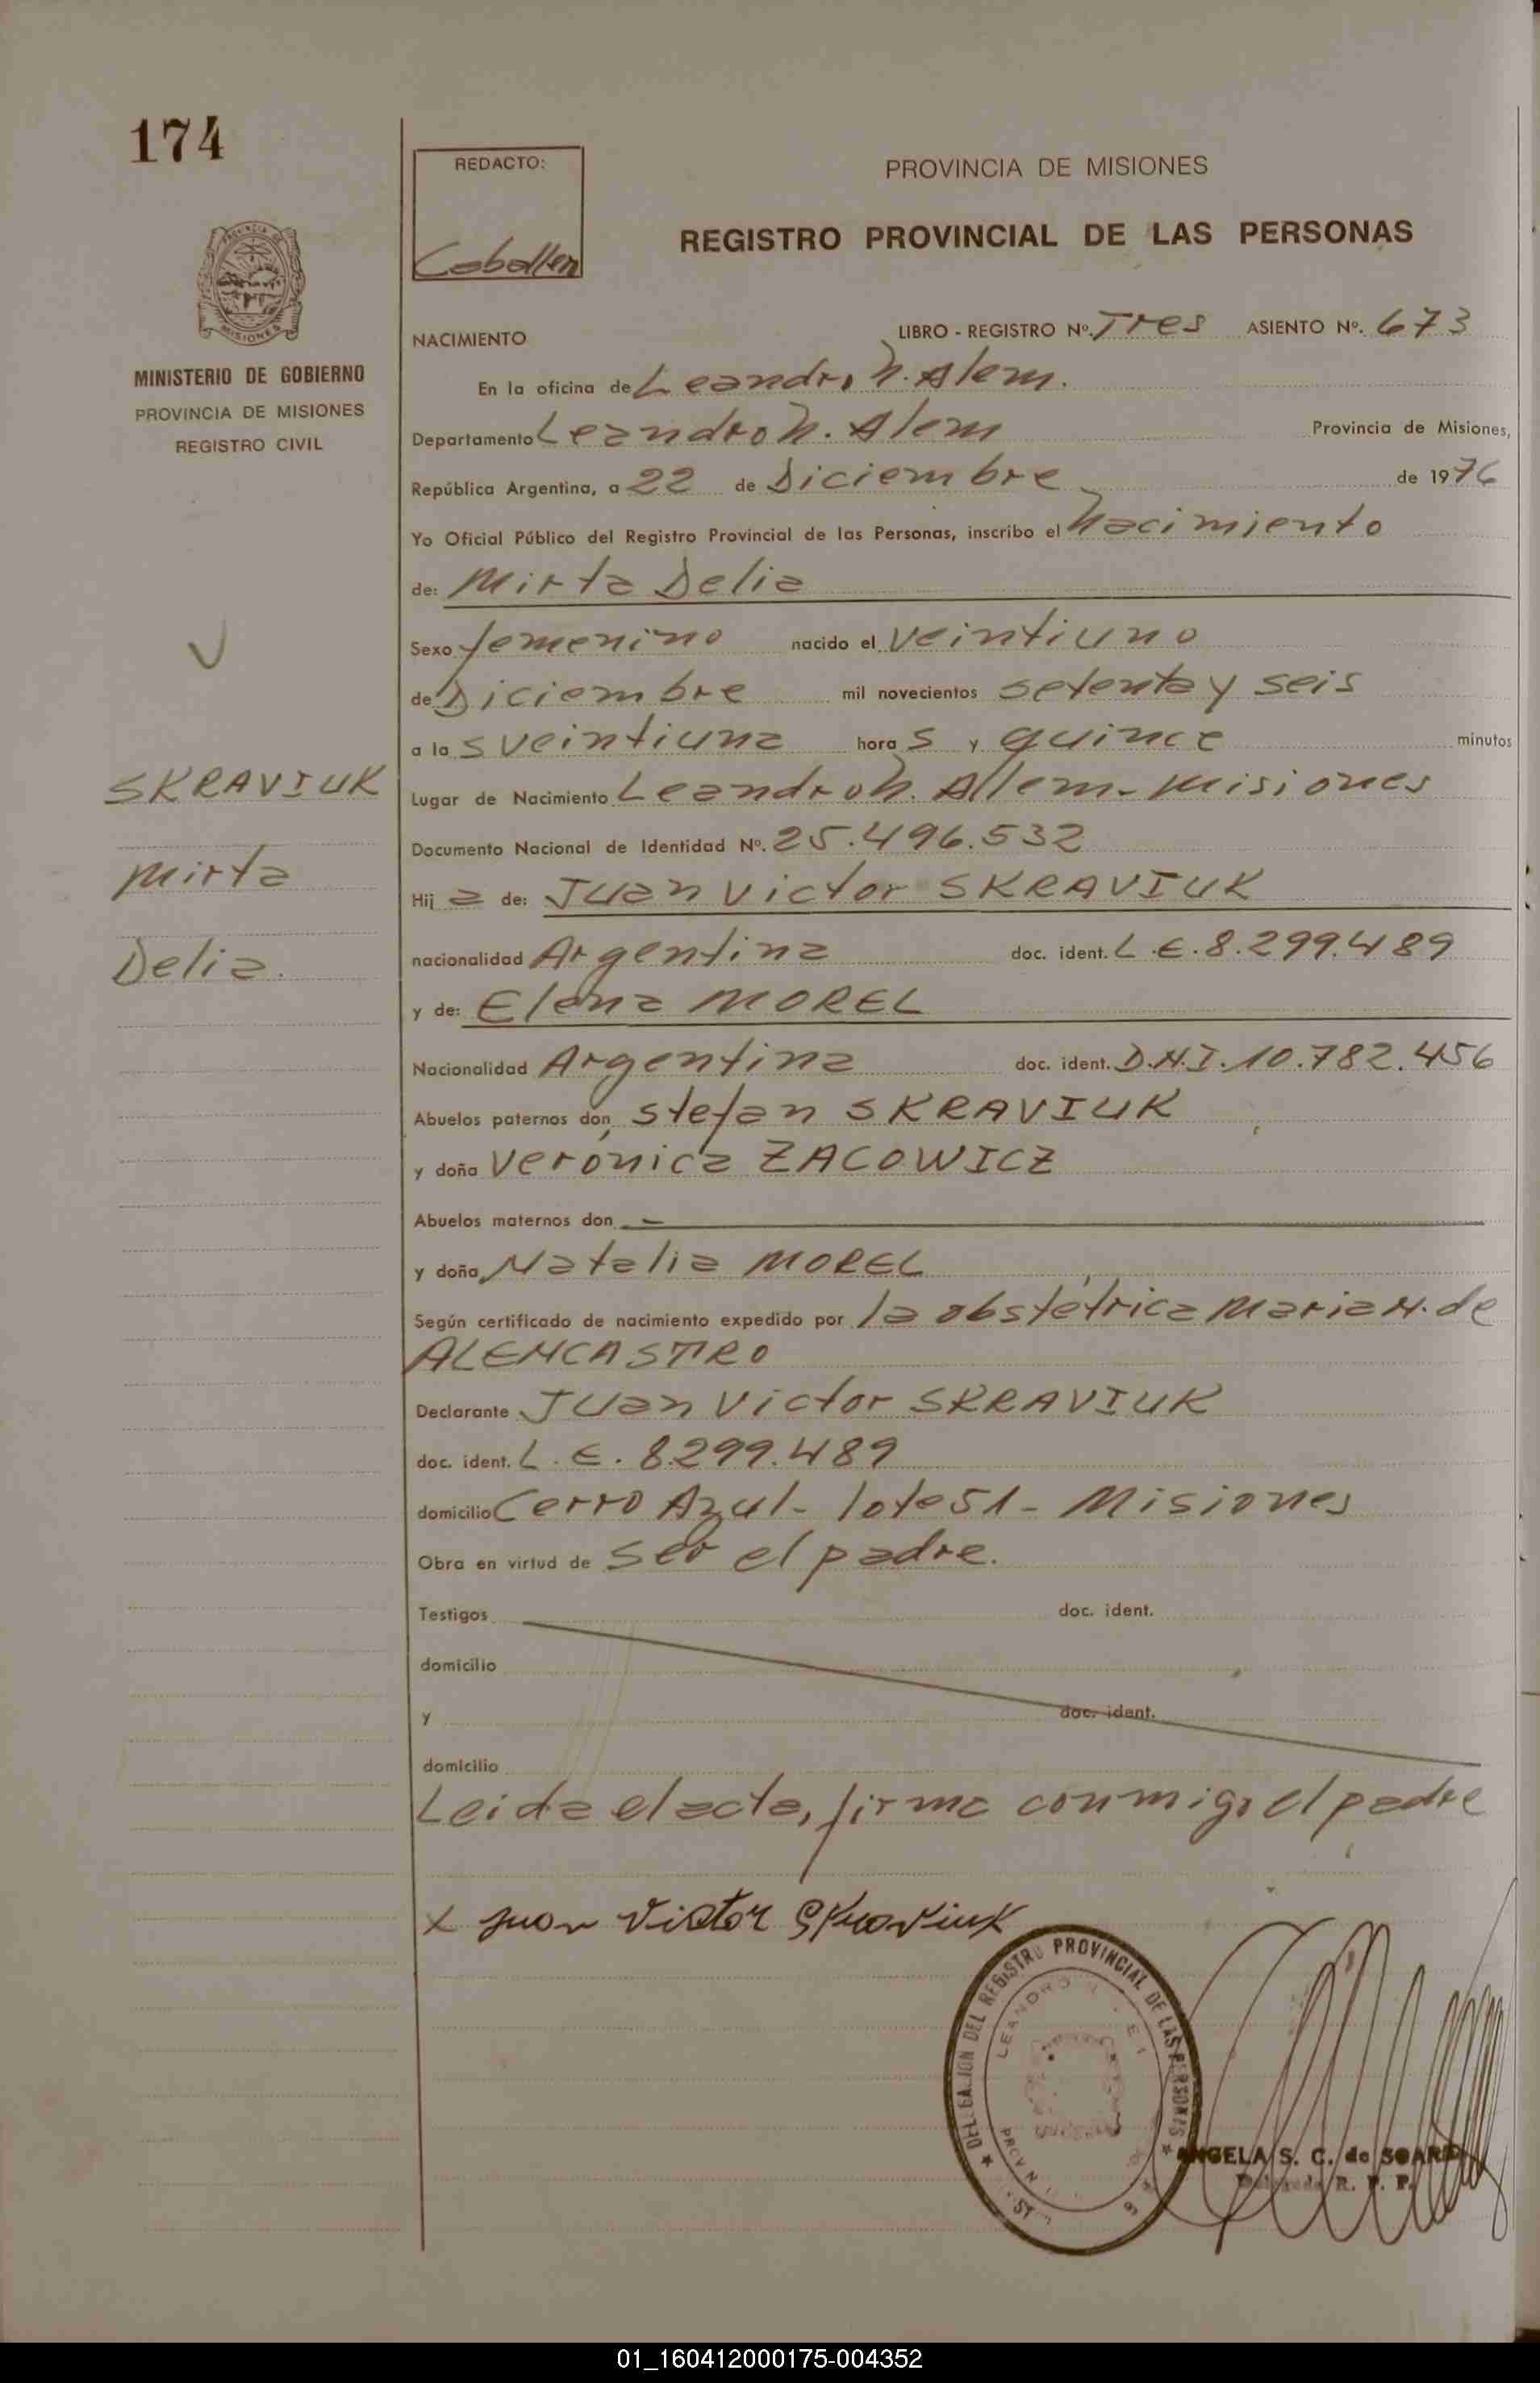 174
REDACTO:
PROVINCIA DE MISIONES
REGISTRO PROVINCIAL DE LAS PERSONAS
PROVINCIA DE
MISIONES
MINISTERIO DE GOBIERNO
PROVINCIA DE MISIONES
REGISTRO CIVIL
SKRAVIUK
Mirta
Delia.
NACIMIENTO
LIBRO - REGISTRO Nº. Tres ASIENTO Nº. 673
En la oficina de Leandro N. Alem.
Departamento Leandro N. Alem Provincia de Misiones,
República Argentina, a 22 de Diciembre de 1976
Yo Oficial Público del Registro Provincial de las Personas, inscribo el Nacimiento
de: Mirta Delia
Sexo femenino nacido el veintiuno
de Diciembre mil novecientos setenta y seis
a las veintiuna horas y quince minutos
Lugar de Nacimiento Leandro N. Allem - Misiones
Documento Nacional de Identidad Nº. 25.496.532
Hija de: Juan Victor SKRAVIUK
nacionalidad Argentina doc. ident. L.E. 8.299.489
y de: Elena MOREL
Nacionalidad Argentina doc. ident. D.N.I. 10.782.456
Abuelos paternos don Stefan SKRAVIUK
y doña Verónica ZACOWICZ
Abuelos maternos don —
y doña Natalia MOREL
Según certificado de nacimiento expedido por la obstétrica Maria N. de
ALENCASTRO
Declarante Juan Victor SKRAVIUK
doc. ident. L.E. 8.299.489
domicilio Cerro Azul - lote 51 - Misiones
Obra en virtud de ser el padre.
Testigos doc. ident.
domicilio
y doc. ident.
domicilio
Leida el acta, firma conmigo el padre
x Juan Victor Skraviuk
DELEGACION DEL REGISTRO PROVINCIAL DE LAS PERSONAS
LEANDRO
ANGELA S. C. de
Delegada R. P. P.
01_160412000175-004352